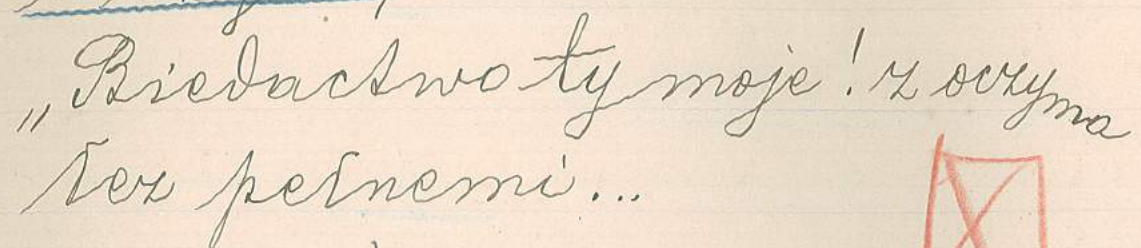 „Biedactwo ty moje! z oczyma
łez pełnemi...